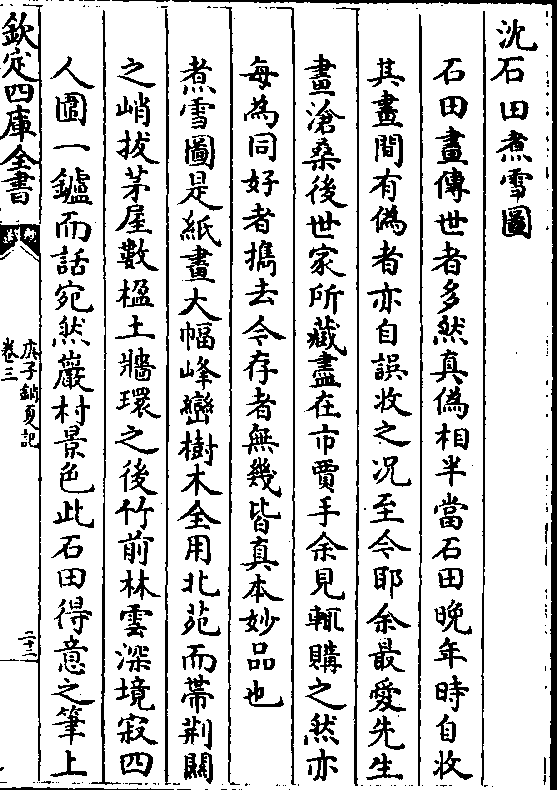 沈石田煮雪圖
石田畫傳世者多然真偽相半當石田晚年時自收
其畫間有偽者亦自誤收之况至今耶余最愛先生
畫滄桑後世家所藏盡在市賈手余見輒購之然亦
每為同好者攜去今存者無幾皆真本妙品也
煮雪圖是紙畫大幅峰巒樹木全用北苑而帶荆關
之峭拔茅屋數楹土牆環之後竹前林雲深境寂四
人圍一鑪而話宛然巖村景色此石田得意之筆上
欽定四庫全書
庚子銷夏記
卷三
二十三